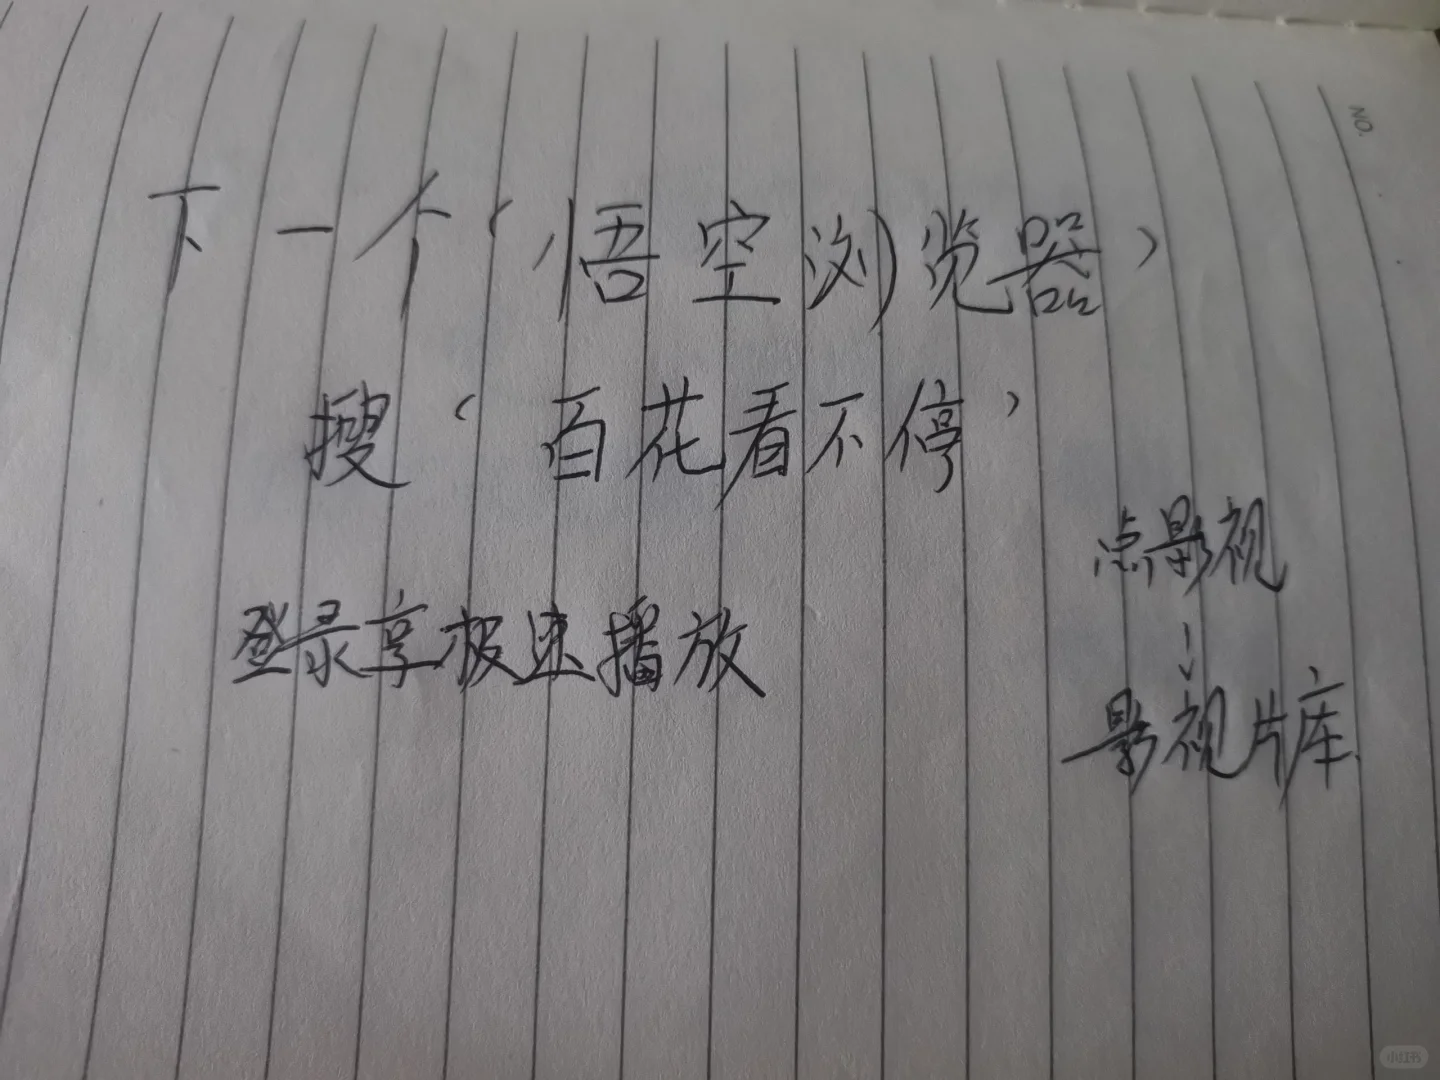 NO.
下一个‘悟空浏览器’
搜‘百花看不停’
点影视
↓
登录享极速播放
影视片库
小红书